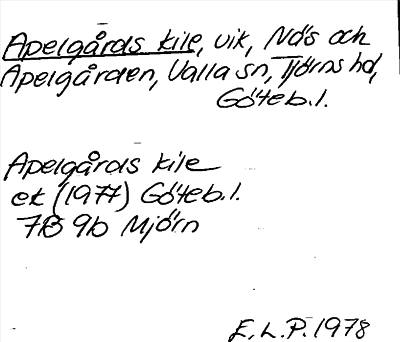 Apelgårds kile, vik, Näs och
Apelgården, Valla sn, Tjörns hd,
Göteb. l.
Apelgårds kile
ek (1977) Göteb. l.
7B 9b Mjörn
E. L. P. 1978